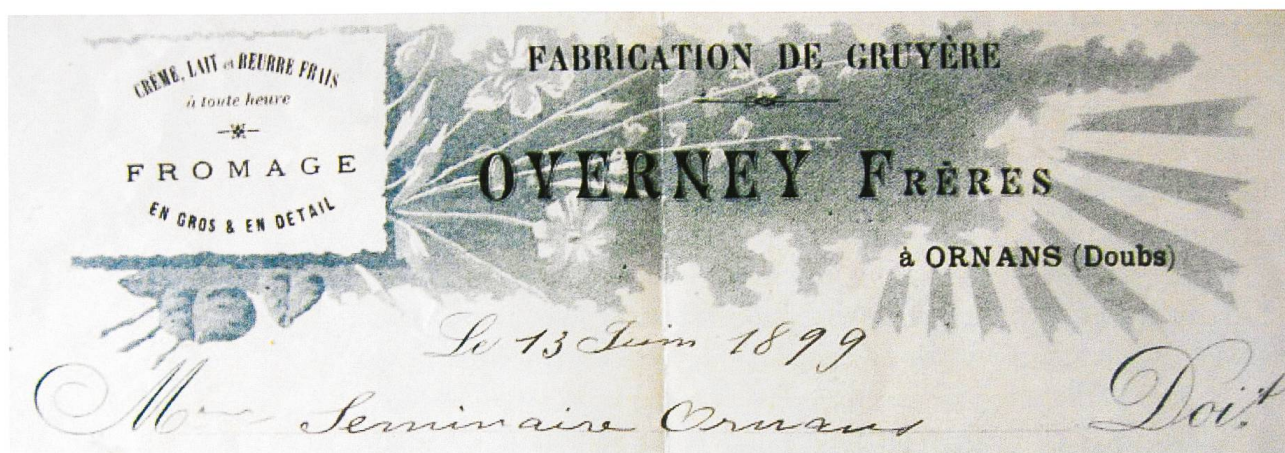 CRÈME, LAIT et BEURRE FRAIS
à toute heure
FROMAGE
EN GROS & EN DETAIL
FABRICATION DE GRUYÈRE
OVERNEY FRÈRES
à ORNANS (Doubs)
Le 13 Juin 1899
M Seminaire Ornans Doit